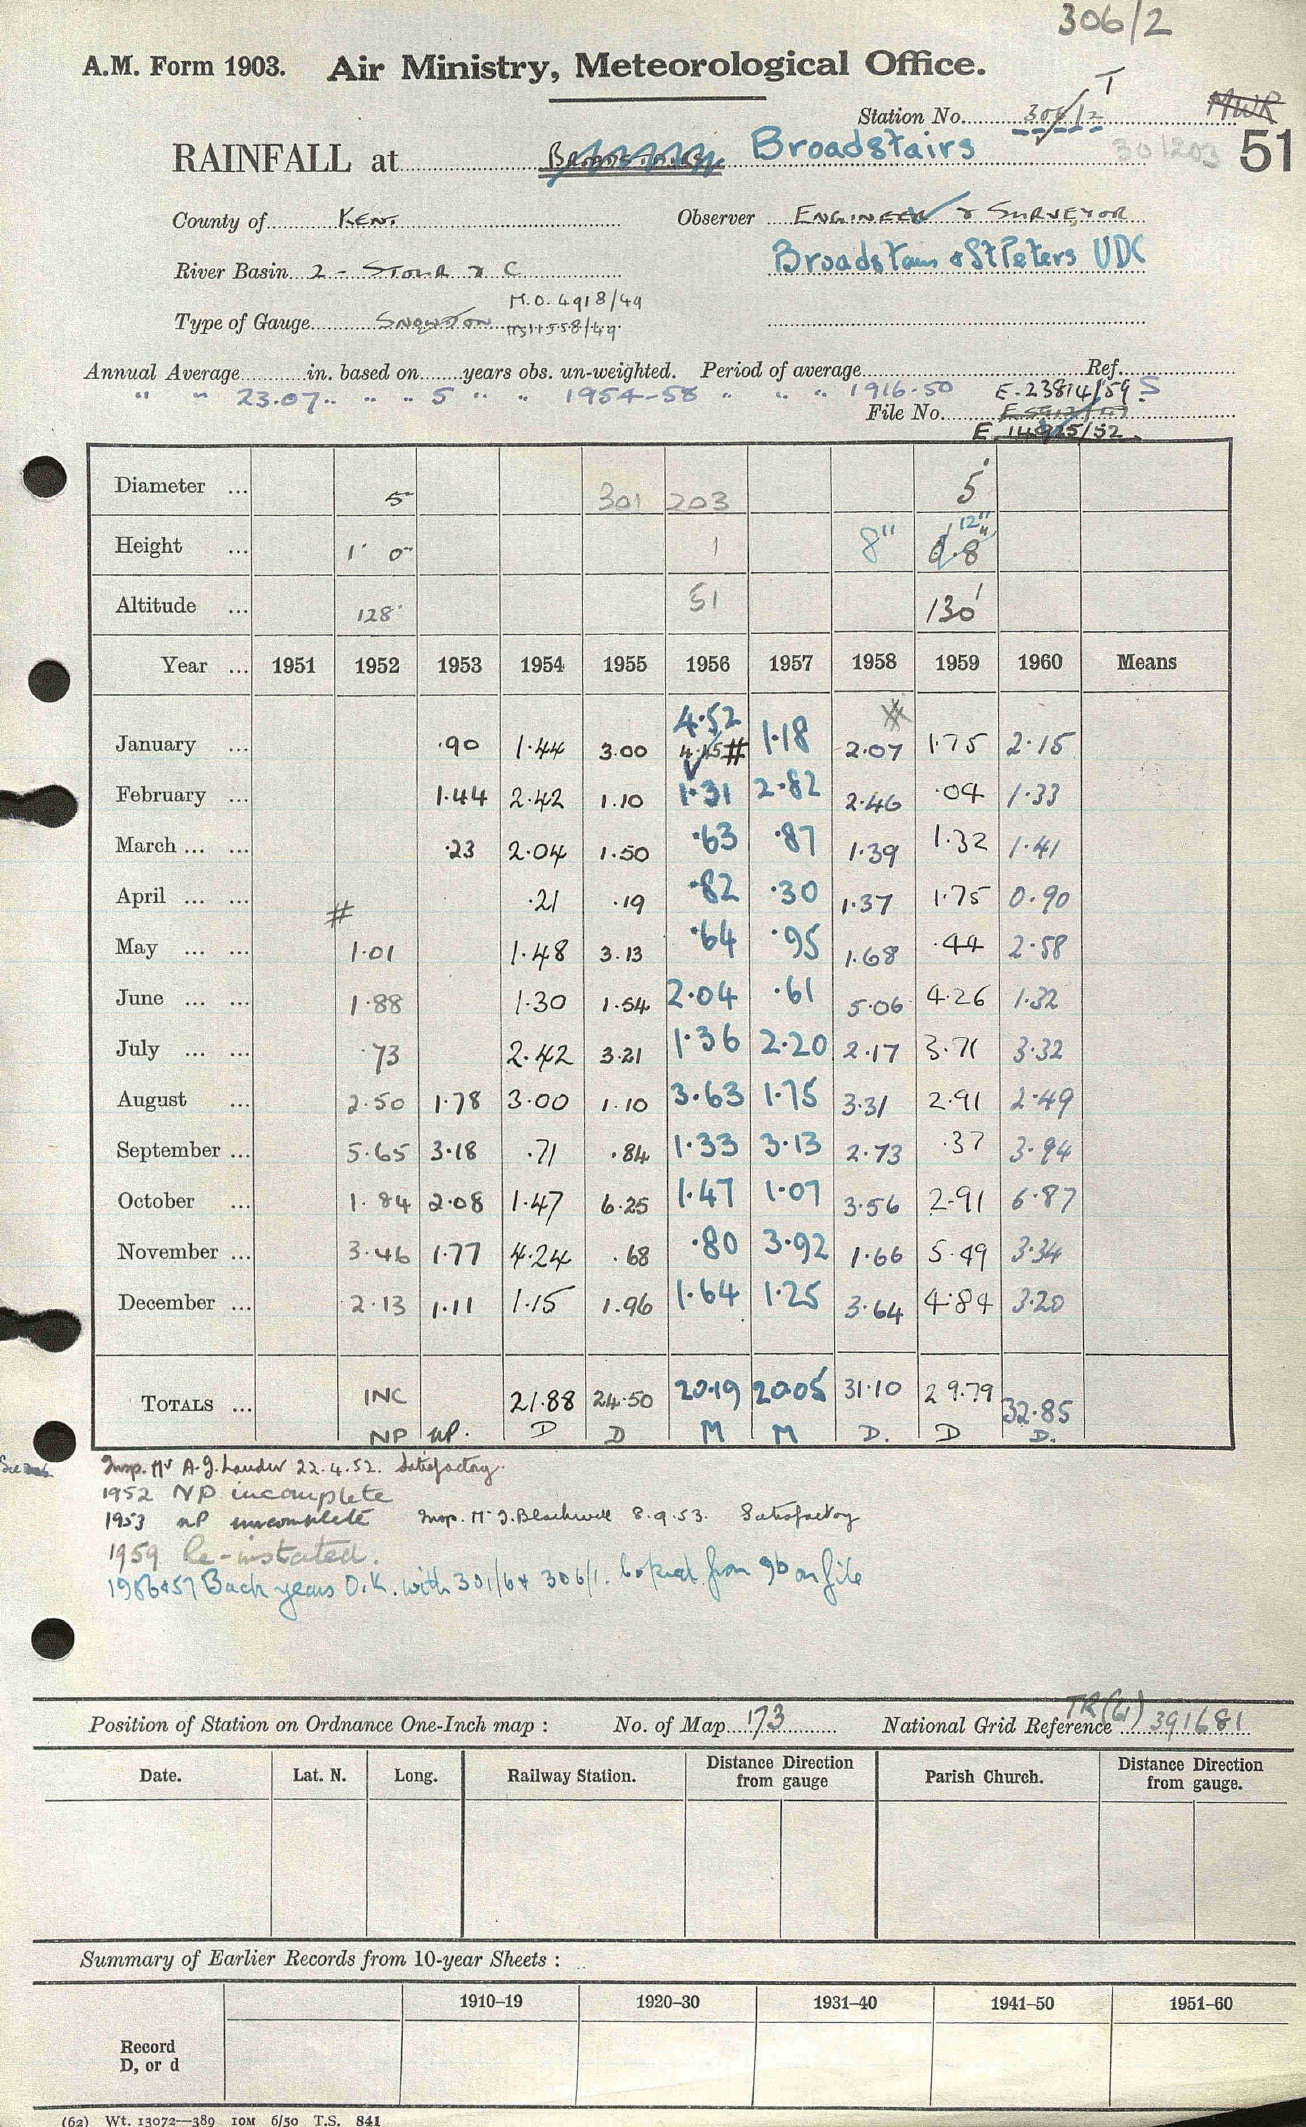 306/2
A.M. Form 1903. Air Ministry, Meteorological Office.
Station No. 306/2 T MWR
RAINFALL at Broadstairs 301203 51
County of KENT Observer ENGINEER & SURVEYOR
River Basin 2 - STOUR & C Broadstairs & St Peters UDC
M.O. 4918/49
Type of Gauge SNOWDON
Annual Average in. based on years obs. un-weighted. Period of average Ref.
" " 23.07 " " " 5 " " 1954-58 " " " 1916-50 E.23814/59 S
File No.
E 14925/52
Diameter ... 5 301 203 5
Height ... 1' 0" 1 8" 0.8" 12"
Altitude ... 128' 51 130'
Year ... 1951 1952 1953 1954 1955 1956 1957 1958 1959 1960 Means
4.52
January ... .90 1.44 3.00 4.15 # 1.18 2.07 1.75 2.15
February ... 1.44 2.42 1.10 1.31 2.82 2.46 .04 1.33
March ... ... .23 2.04 1.50 .63 .87 1.39 1.32 1.41
April ... ... # .21 .19 .82 .30 1.37 1.75 0.90
May ... ... 1.01 1.48 3.13 .64 .95 1.68 .44 2.58
June ... ... 1.88 1.30 1.54 2.04 .61 5.06 4.26 1.32
July ... ... .73 2.42 3.21 1.36 2.20 2.17 3.71 3.32
August ... 2.50 1.78 3.00 1.10 3.63 1.75 3.31 2.91 2.49
September ... 5.65 3.18 .71 .84 1.33 3.13 2.73 .37 3.94
October ... 1.84 2.08 1.47 6.25 1.47 1.07 3.56 2.91 6.87
November ... 3.46 1.77 4.24 .68 .80 3.92 1.66 5.49 3.34
December ... 2.13 1.11 1.15 1.96 1.64 1.25 3.64 4.84 3.20
TOTALS ... INC 21.88 24.50 20.19 20.05 31.10 29.79 32.85
NP NP. D D M M D. D D.
Insp. Mr A.J. Lander 22.4.52. Satisfactory.
1952 NP incomplete
1953 NP incomplete Insp. Mr J. Blackwell 8.9.53. Satisfactory
1959 Re-instated.
1956+57 Back years O.K. with 301/6 + 306/1. copied from 9b on file
Position of Station on Ordnance One-Inch map : No. of Map 173 National Grid Reference TR(61) 391681
Date. Lat. N. Long. Railway Station. Distance Direction from gauge Parish Church. Distance Direction from gauge.
Summary of Earlier Records from 10-year Sheets :
1910–19 1920–30 1931–40 1941–50 1951–60
Record
D, or d
(62) Wt. 13072—389 10M 6/50 T.S. 841